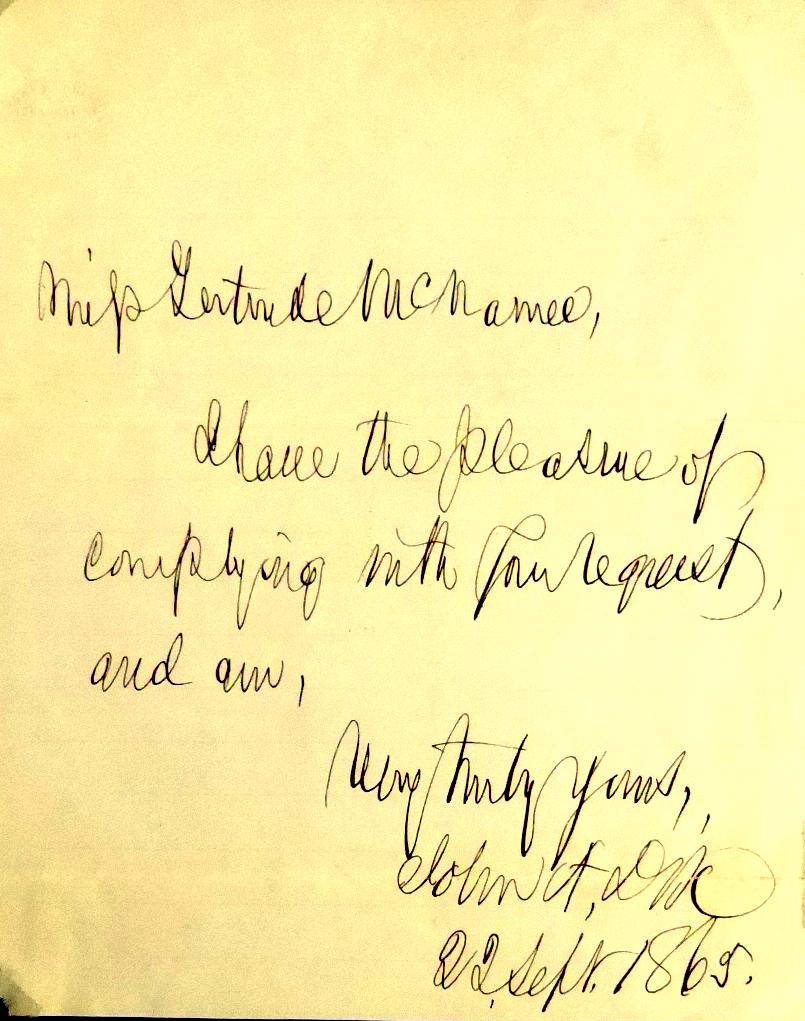 Miss Gertrude McNamee,
I have the pleasure of
complying with your request,
and am,
Very truly yours,
John A. Dix
22, Sept. 1865.